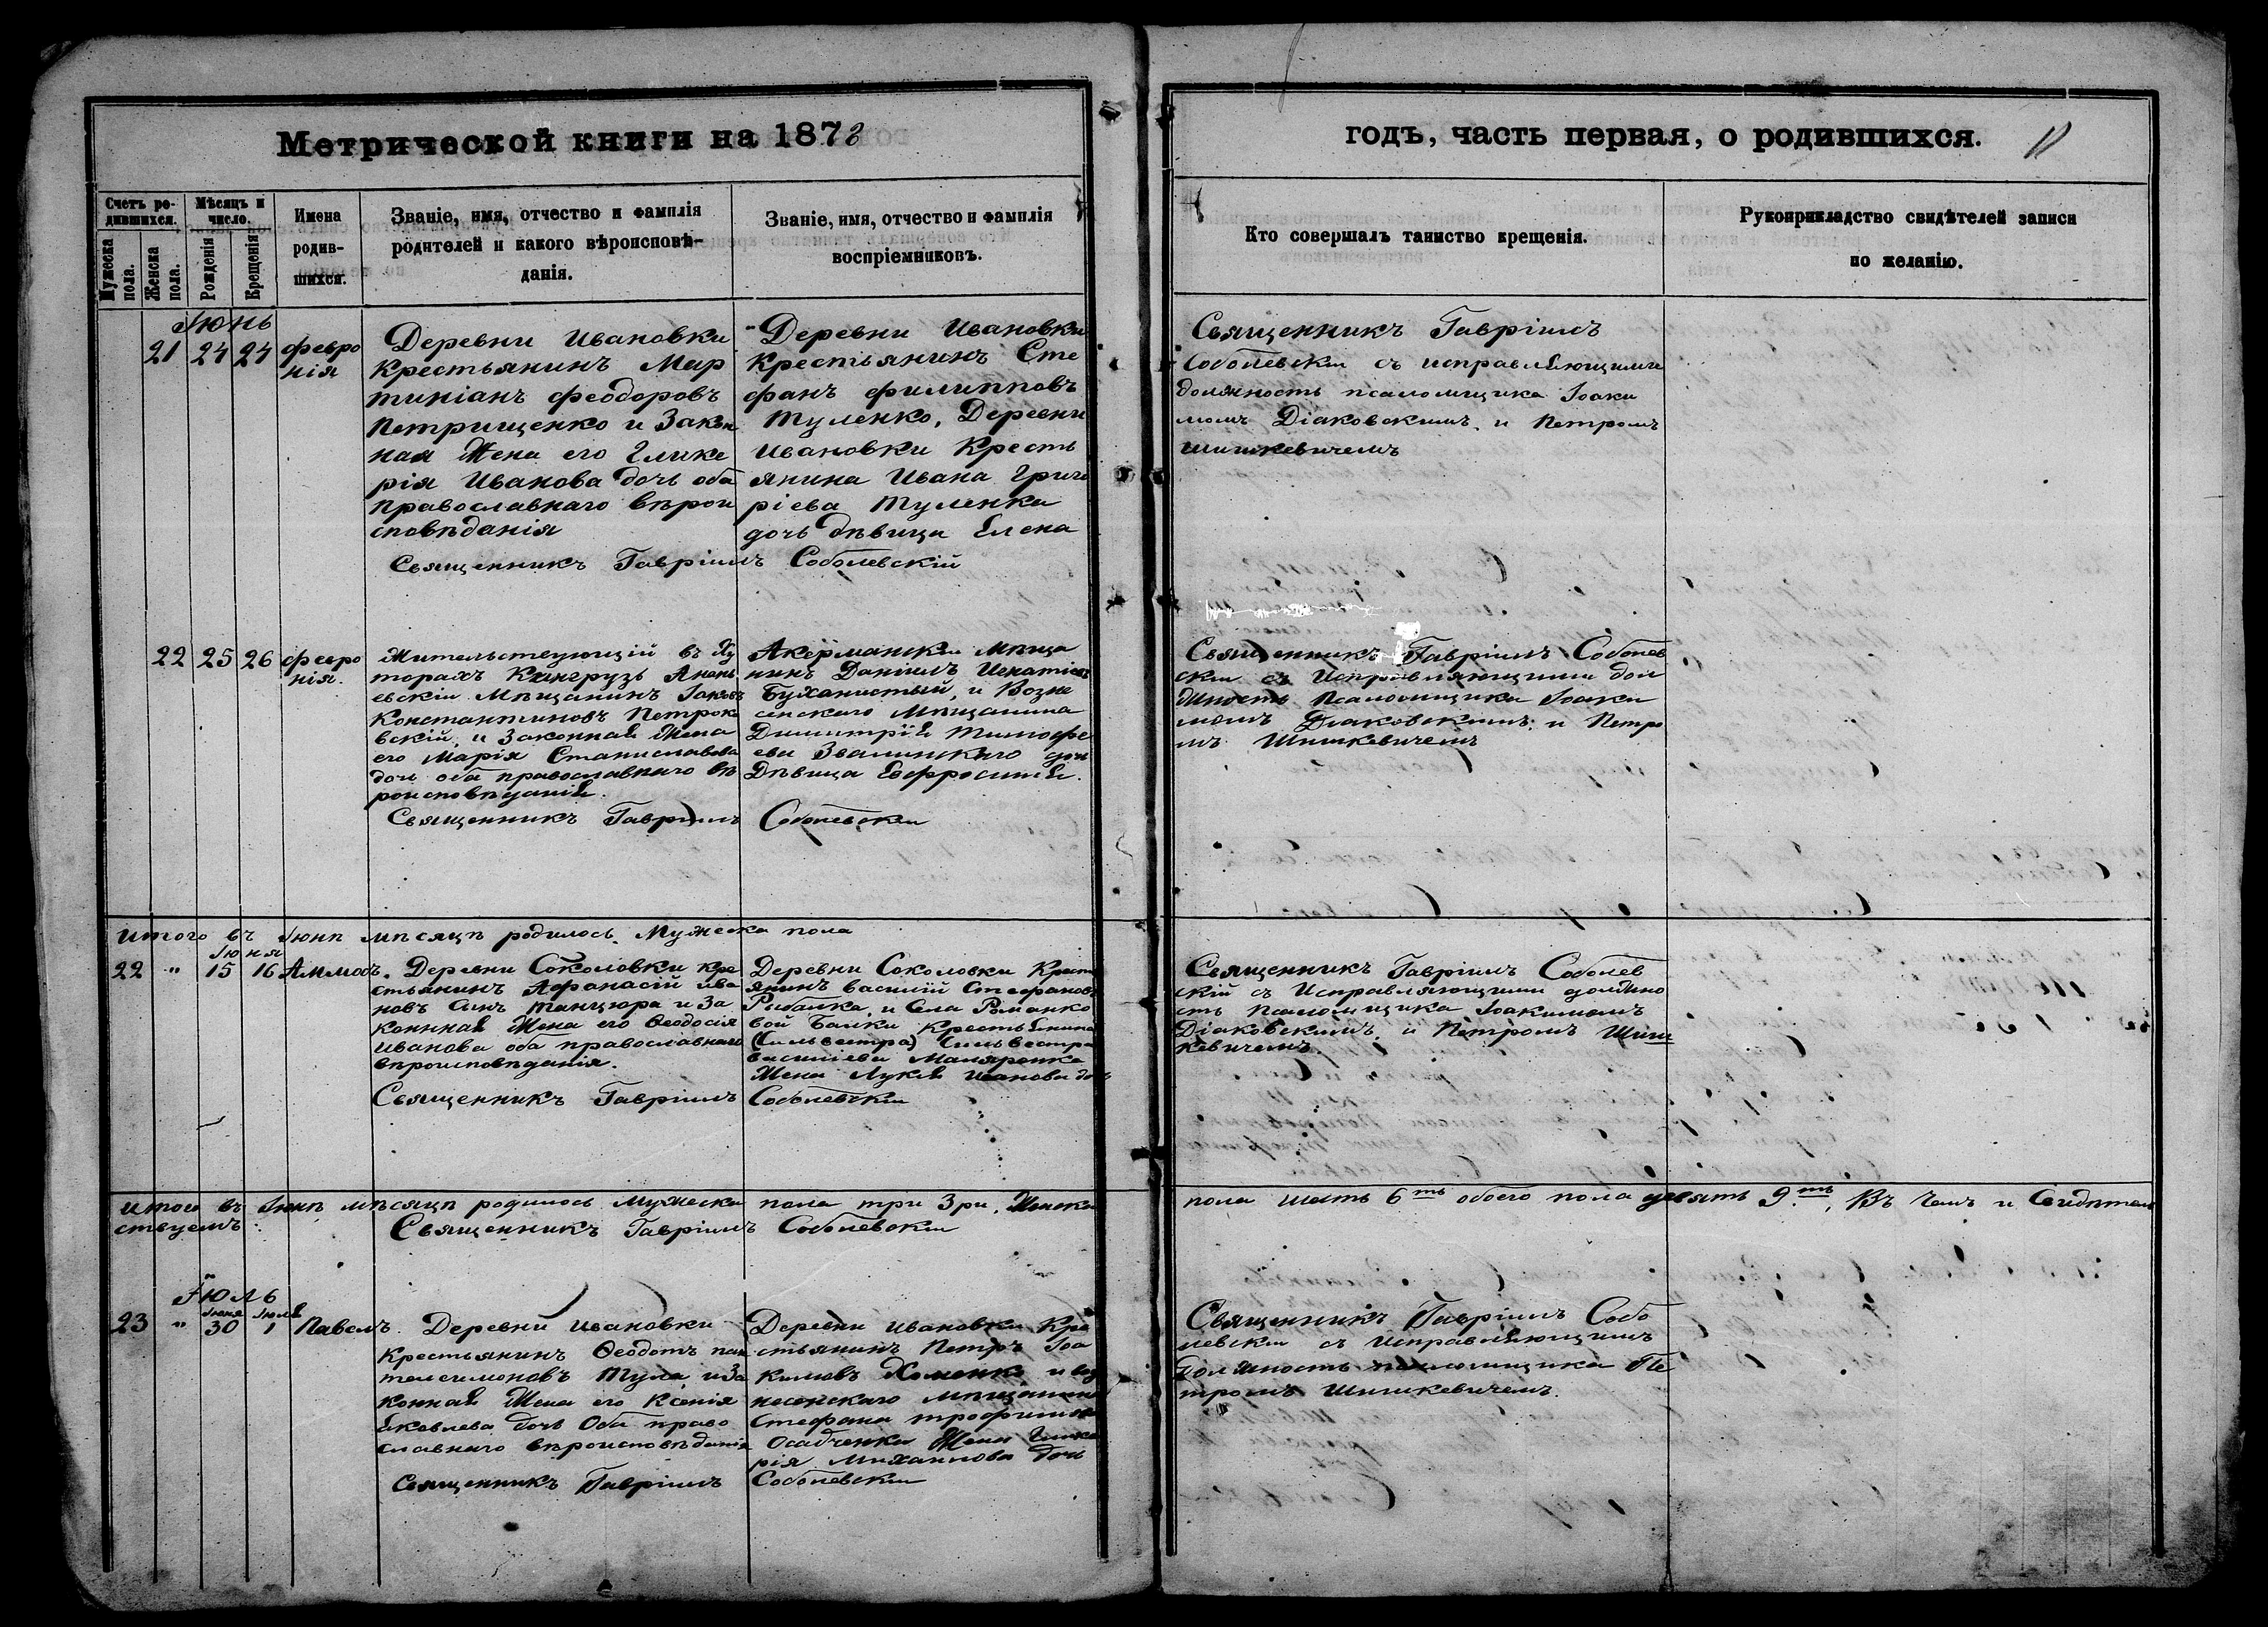 Метрической книги на 1873
годъ, часть первая, о родившихся.
11
Счетъ родившихся.
Мужеска пола.
Женска пола.
Мѣсяцъ и число.
Рожденія
Крещенія
Имена родившихся.
Званіе, имя, отчество и фамилія
родителей и какого вѣроисповѣ-
данія.
Званіе, имя, отчество и фамилія
воспріемниковъ.
Кто совершалъ таинство крещенія.
Рукоприкладство свидѣтелей записи
по желанію.
Іюнь
21 24 24 Февро
нія
Деревни Ивановки
Крестьянинъ Мар
тиніанъ Феодоровъ
Петрищенко и Закон
ная Жена его Глике
рія Иванова дочь оба
Православнаго вѣрои
сповѣданія
Деревни Ивановки
Крестьянинъ Сте
фанъ Филипповъ
Туленко, Деревни
Ивановки Кресть
янина Ивана Григо
ріева Туленка
дочь дѣвица Елена
Священникъ Гавріилъ Соболевскій
Священникъ Гавріилъ
Соболевскій съ исправляющими
должность псаломщика Іоаки
момъ Діаковскимъ и Петромъ
Шишкевичемъ
22 25 26 Февро
нія.
Жительствующій въ Ху
торахъ Кантрузъ Анань
евскій Мѣщанинъ Іаковъ
Константиновъ Петроко
вскій, и Законная Жена
его Марія Станиславова
дочь оба православнаго вѣ
роисповѣданія.
Акерманскій Мѣща
нинъ Даніилъ Игнатіевъ
Буханистый, и Возне
сенскаго Мѣщанина
Димитрія Тимофе
ева Звалинскаго дочь
Дѣвица Евфросинія.
Священникъ Гавріилъ Соболевскій
Священникъ Гавріилъ Соболев
скій съ Исправляющими дол
жность Псаломщика Іоаки
момъ Діаковскимъ и Петро
мъ Шишкевичемъ
Итого въ Іюнѣ мѣсяцѣ родилось Мужеска пола
Іюня
22 " 15 16 Аммосъ.
Деревни Соколовки кре
стьянинъ Афанасій Ива
новъ Сынъ Танцюра и За
конная Жена его Ѳеодосія
Иванова оба православнаго
вѣроисповѣданія.
Деревни Соколовки Кресть
янинъ Василій Стефановъ
Рыбалка, и Села Романко
вой Балки Крестьянина
(Сильвестра) Сильвестра
Василіева Маляренка
Жена Лукія Иванова дочь
Священникъ Гавріилъ Соболевскій
Священникъ Гавріилъ Соболев
скій съ Исправляющими должно
сть Псаломщика Іоакимомъ
Діаковскимъ и Петромъ Шиш
кевичемъ
Итого въ Іюнѣ мѣсяцѣ родилось Мужеска пола три 3 ри, Женска
пола шесть 6ть обоего пола девять 9ть, Въ чемъ и Свидѣтель
ствуемъ:
Священникъ Гавріилъ Соболевскій
Іюль
Іюня Іюля
23 " 30 1 Павелъ.
Деревни Ивановки
Крестьянинъ Ѳеодотъ пан
телеимоновъ Тула и За
конная Жена его Ксенія
Яковлева дочь Оба право
славнаго вѣроисповѣданія
Деревни Ивановки Кре
стьянинъ Петръ Іоа
кимовъ Хоменко и воз
несенскаго мѣщанина
Стефана Трофимова
Осадченка Жена Глике
рія Михаилова дочь
Священникъ Гавріилъ Соболевскій
Священникъ Гавріилъ Собо
левскій съ исправляющимъ
должность псаломщика Пе
тромъ Шишкевичемъ.